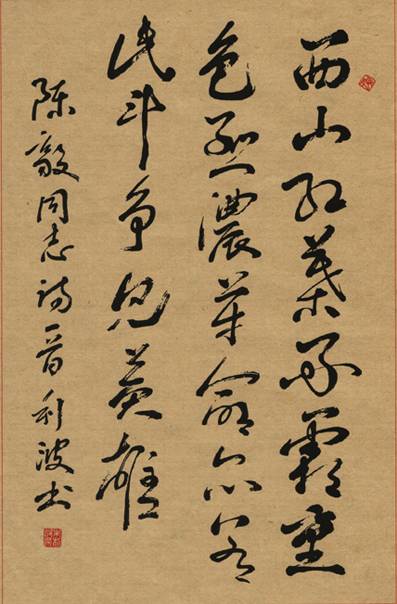 西山红葉好霜重
色愈濃革命亦若
此斗争见英雄
陈毅同志诗一首利波书